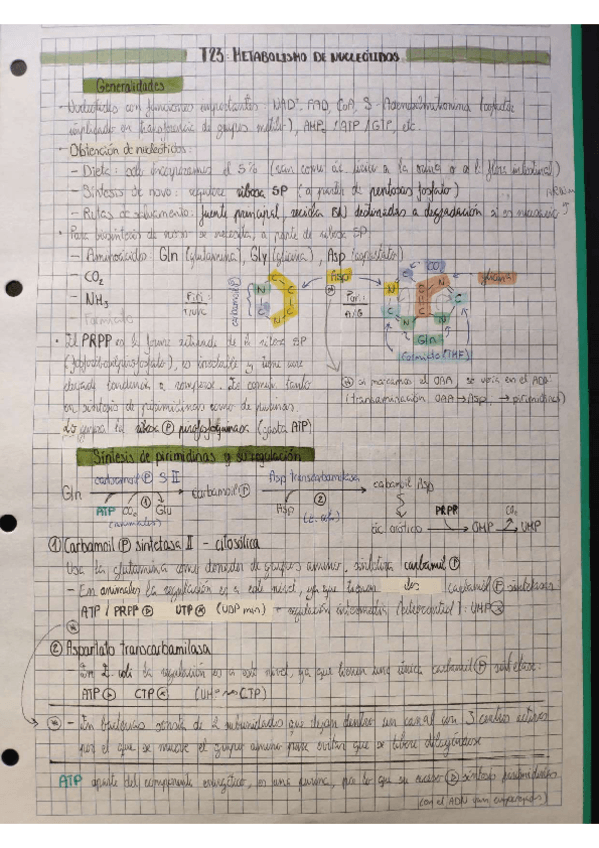 T23: METABOLISMO DE NUCLEÓTIDOS
Generalidades
- Nucleótidos con funciones importantes: NAD⁺, FAD, CoA, S-Adenosilmetionina (cofactor
implicado en transferencia de grupos metilo), AMPc / ATP / GTP, etc.
- Obtención de nucleótidos:
- Dieta: solo incorporamos el 5% (sean como ác. úrico a la orina o a la flora intestinal)
- Síntesis de novo: requiere ribosa 5P (a partir de pentosas fosfato)
- Rutas de salvamento: fuente principal, recicla BN destinadas a degradación si es necesario
- Para biosíntesis de novo se necesita, a parte de ribosa 5P:
- Aminoácidos: Gln (glutamina), Gly (glicina), Asp (aspartato)
- CO₂
- NH₃
- Formiato
Piri: T/U/C
carbamoil P
Asp
Pur: A/G
CO₂
glicina
Gln
Formiato (THF)
C N C C N C
N C C C N C N C N
- El PRPP es la forma activada de la ribosa 5P
(5-fosforribosilpirofosfato), es inestable y tiene una
elevada tendencia a romperse. Es común tanto
en síntesis de pirimidinas como de purinas.
Lo genera la ribosa P pirofosfoquinasa (gasta ATP)
* si marcamos el OAA, se vería en el ADN
(transaminación OAA → Asp, → pirimidinas)
Síntesis de pirimidinas y su regulación
carbamoil P S-II
Asp transcarbamilasa
Gln
carbamoil P
carbamoil Asp
ATP CO₂ ① Glu
(animales)
Asp ②
(E. coli)
ác orótico
PRPP
OMP
CO₂
UMP
① Carbamoil P sintetasa II - citosólica
Usa la glutamina como donador de grupos amino, sintetiza carbamil P
- En animales la regulación es a este nivel, ya que tienen dos (carbamil P sintetasas
ATP / PRPP UTP (UDP man) - regulación intermedia /autocontrol!: UMP
② Aspartato transcarbamilasa
En E. coli la regulación es a este nivel, ya que tienen una única carbamil P sintetasa:
ATP CTP (UMP CTP)
* - En bacterias consta de 2 subunidades que dejan dentro un canal con 3 centros activos
por el que se mueve el grupo amino para evitar que se libere difundiéndose
ATP aparte del componente energético, es una purina, por lo que su exceso síntesis pirimidinas
(en el ADN van emparejadas)